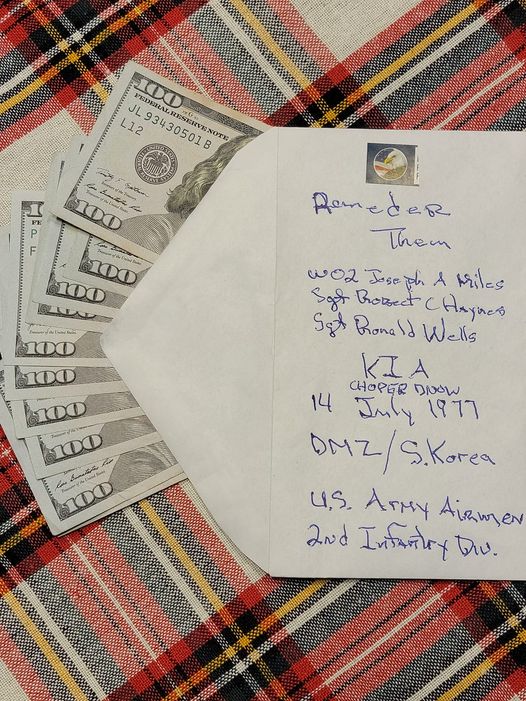 100
FEDERAL RESERVE NOTE
JL 93430501 B
L12
100
100
100
100
100
100
100
100
Rameder
Them
WO2 Joseph A Miles
Sgt Robert C Haynes
Sgt Ronald Wells
KIA
CHOPER DNOW
14 July 1977
DMZ/S.Korea
U.S. Army Airmen
2nd Infantry Div.